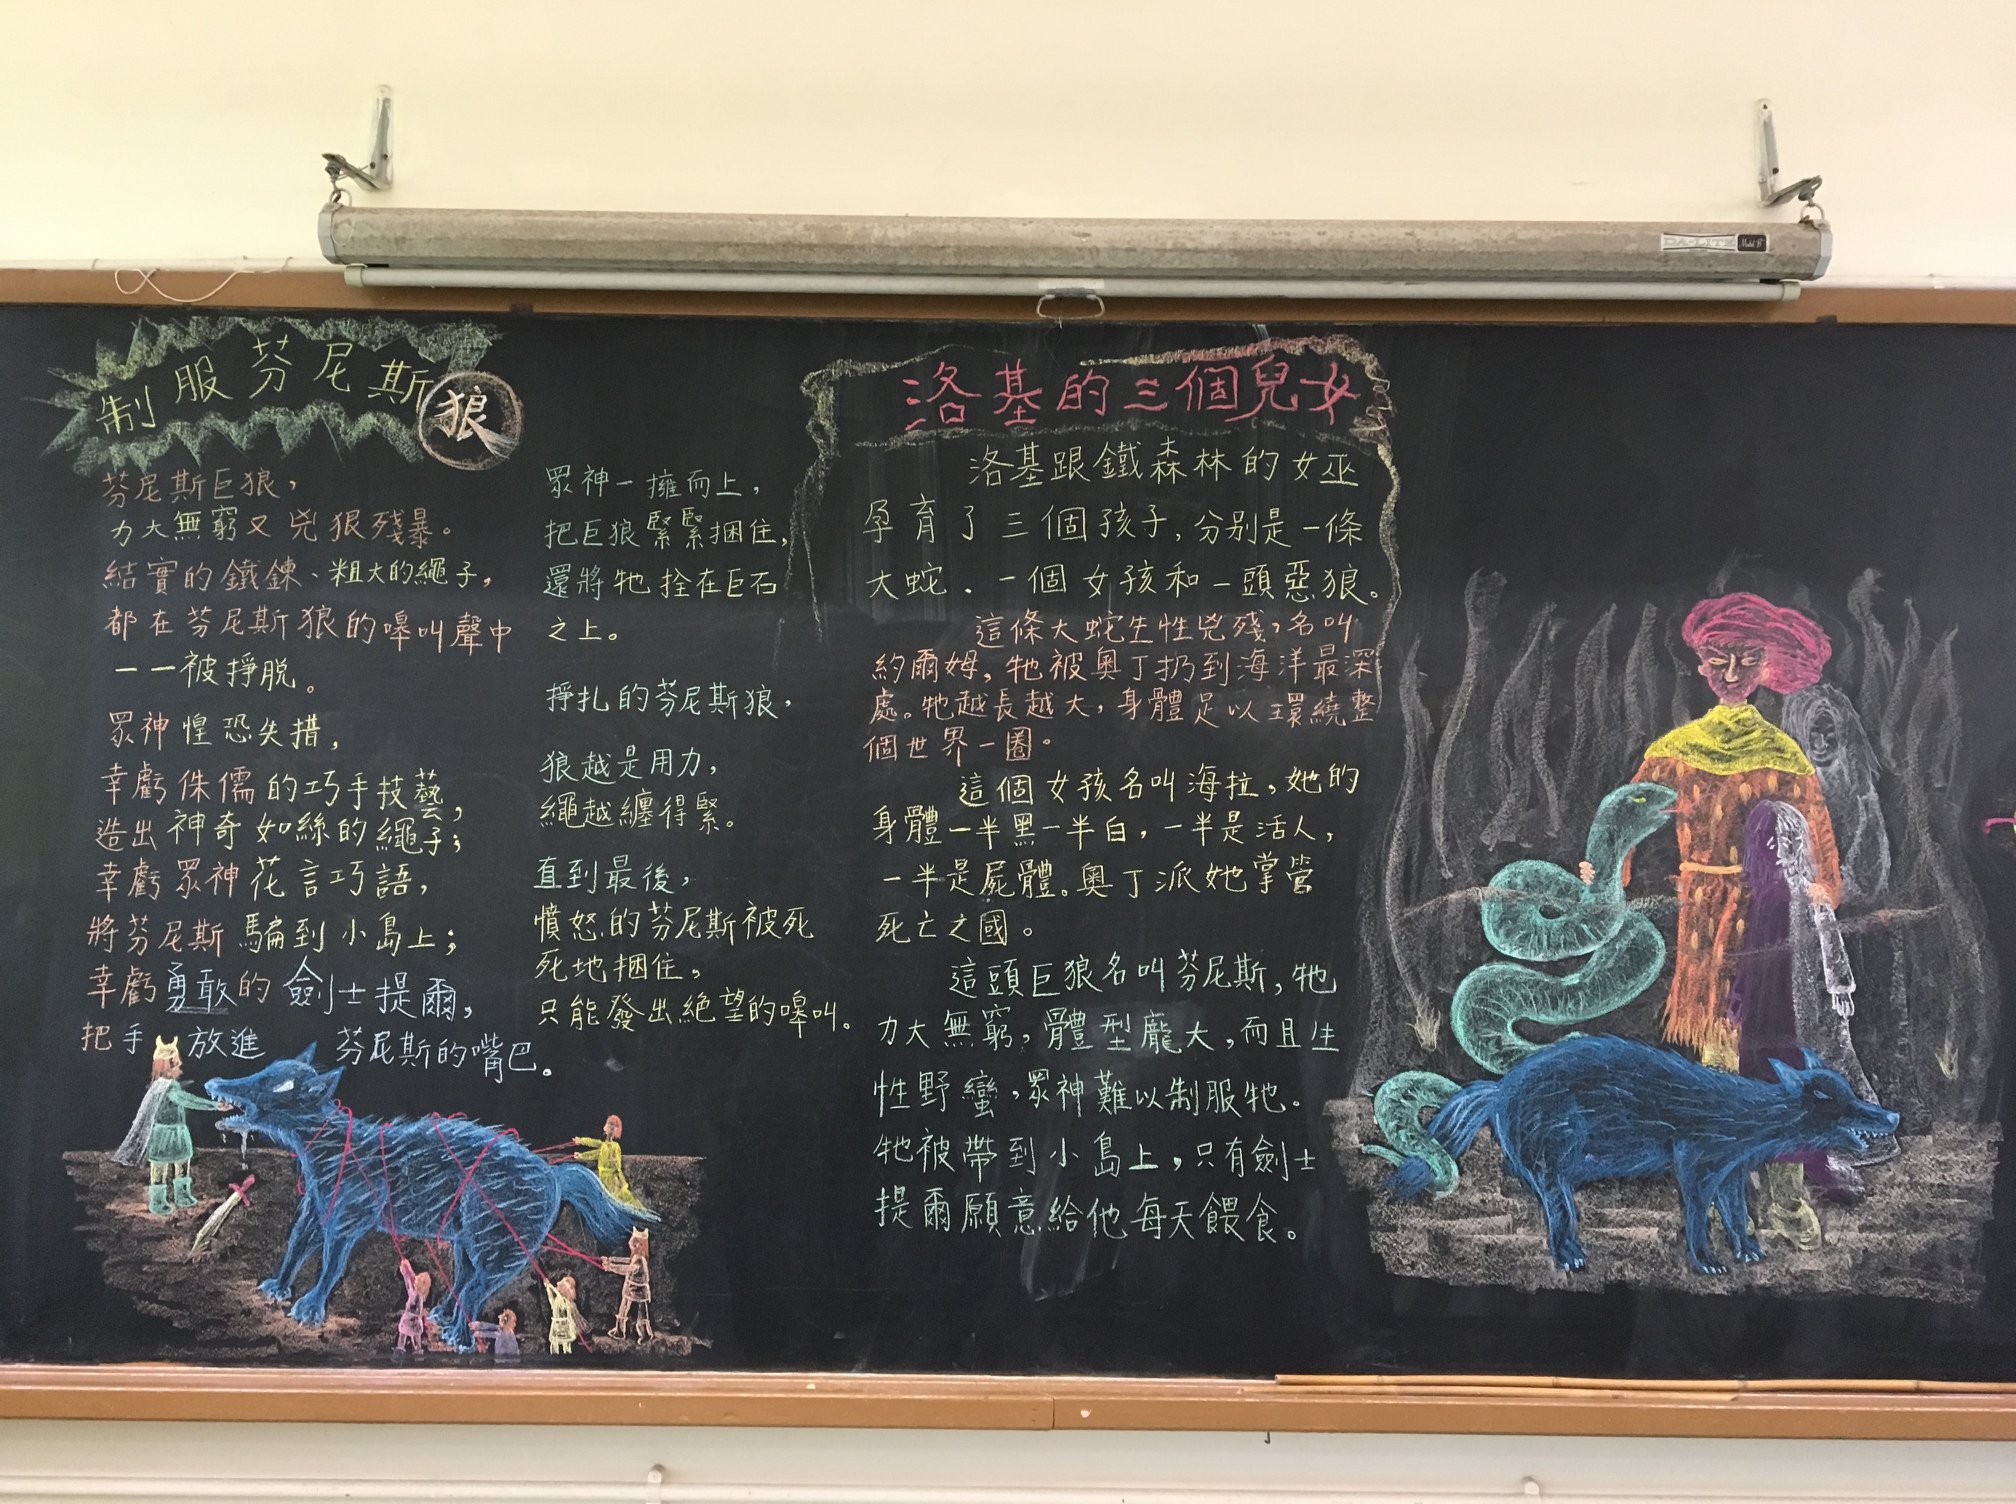 制服芬尼斯狼
芬尼斯巨狼，
力大無窮又兇狠殘暴。
結實的鐵鍊、粗大的繩子，
都在芬尼斯狼的嗥叫聲中
一一被掙脫。
眾神惶恐失措，
幸虧侏儒的巧手技藝，
造出神奇如絲的繩子；
幸虧眾神花言巧語，
將芬尼斯騙到小島上；
幸虧勇敢的劍士提爾，
把手放進芬尼斯的嘴巴。
眾神一擁而上，
把巨狼緊緊捆住，
還將牠拴在巨石
之上。
掙扎的芬尼斯狼，
狼越是用力，
繩越纏得緊。
直到最後，
憤怒的芬尼斯被死
死地捆住。
只能發出絕望的嗥叫。
洛基的三個兒女
洛基跟鐵森林的女巫
孕育了三個孩子，分別是一條
大蛇．一個女孩和一頭惡狼。
這條大蛇生性兇殘，名叫
約爾姆，牠被奧丁扔到海洋最深
處。牠越長越大，身體足以環繞整
個世界一圈。
這個女孩名叫海拉，她的
身體一半黑一半白，一半是活人，
一半是屍體。奧丁派她掌管
死亡之國。
這頭巨狼名叫芬尼斯，牠
力大無窮，體型龐大，而且生
性野蠻，眾神難以制服牠。
牠被帶到小島上，只有劍士
提爾願意給他每天餵食。
DA-LITE Model B